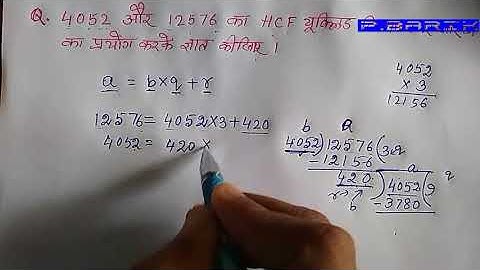 Q. 4052 और 12576 का HCF यूक्लिड
P.BARIK
का प्रयोग करके ज्ञात कीजिए ।
a = b×q + r
12576 = 4052×3+420
4052 = 420 ×
4052
× 3
12156
b a
4052) 12576 (3 q
-12156
a q
420) 4052 (9
r b -3780